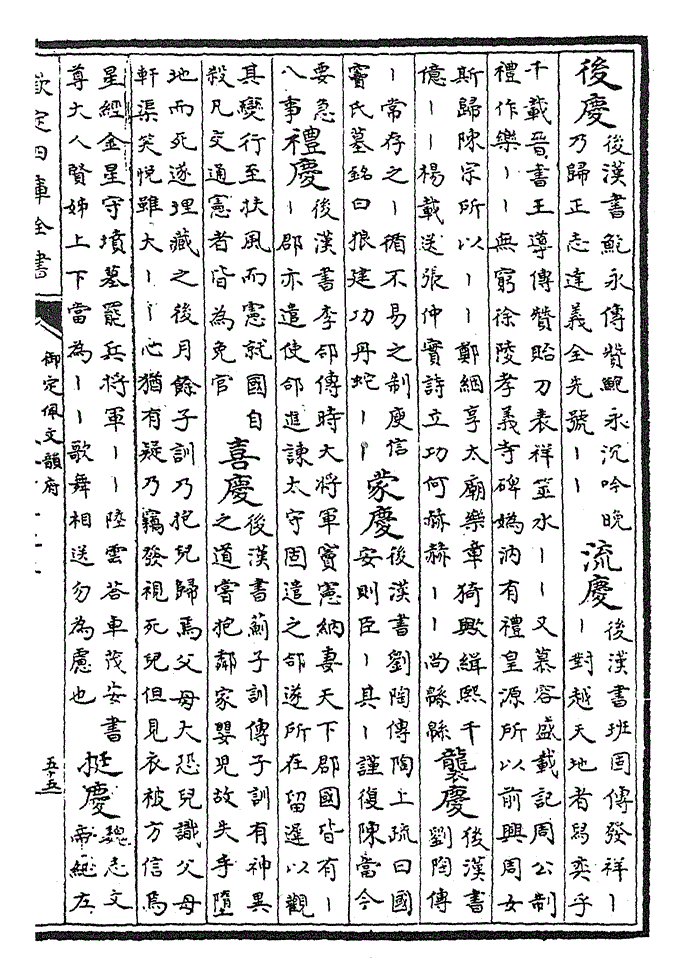 後慶
後漢書鮑永傳贊鮑永沉吟晚
乃歸正志達義全先號丨丨
流慶
後漢書班固傳發祥丨
丨對越天地者舄奕乎
千載晉書王導傳贊貽刀表祥筮水丨丨又慕容盛載記周公制
禮作樂丨丨無窮徐陵孝義寺碑媯汭有禮皇源所以前興周女
斯歸陳宗所以丨丨鄭絪享太廟樂章猗歟緝熙千
億丨丨楊載送張仲實詩立功何赫赫丨丨尚緜緜
襲慶
後漢書
劉陶傳
丨常存之丨循不易之制庾信
竇氏墓銘曰狼建功丹蛇丨丨
蒙慶
後漢書劉陶傳陶上疏曰國
安則臣丨其丨謹復陳當今
要急
八事
禮慶
後漢書李郃傳時大將軍竇憲納妻天下郡國皆有丨
丨郡亦遣使郃進諫太守固遣之郃遂所在留遲以觀
其變行至扶風而憲就國自
殺凡交通憲者皆為免官
喜慶
後漢書薊子訓傳子訓有神異
之道嘗抱鄰家嬰兒故失手墮
地而死遂埋藏之後月餘子訓乃抱兒歸焉父母大恐兒識父母
軒渠笑悅雖大丨丨心猶有疑乃竊發視死兒但見衣被方信焉
星經金星守墳墓罷兵將軍丨丨陸雲答車茂安書
尊大人賢姊上下當為丨丨歌舞相送勿為慮也
挺慶
魏志文
帝紀左
欽定四庫全書
御定佩文韻府
五十五